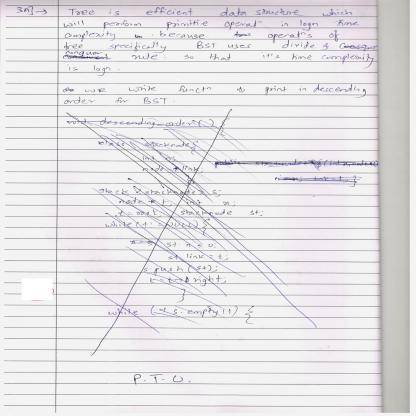 3A] → Tree is efficient data structure which
will perform primitive operatn in logn time
complexity because operatns of
tree specifically BST uses divide &
conquer rule so that it's time complexity
is logn.
we write functn to print in descending
order for BST.
void descending_order( ) {
class stacknode {
int n;
node * link;
stack < stacknode > s;
node * t; int n;
t = root stacknode st;
while (t != NULL) {
st n = 0;
st link = t;
s.push (st);
t = t → right;
}
while (! s.empty()) {
P.T.O.